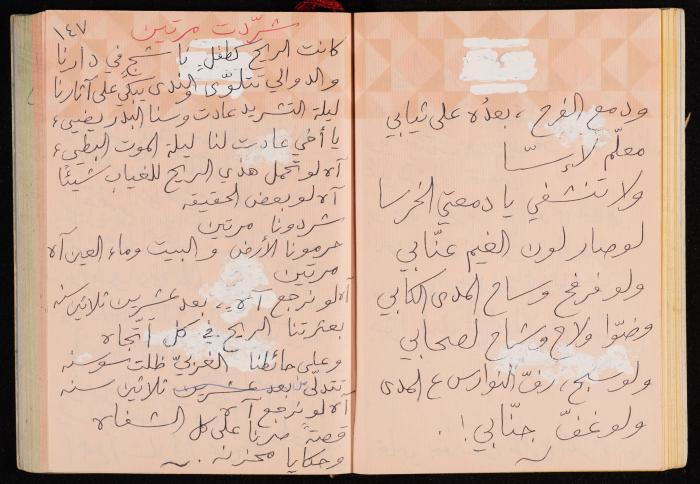 ودمع الفرح ، بعدُه على ثيابي
معلّم لإسّا
ولا تنشفي يا دمعتي الخرسا
لو صار لون الغيم عنّابي
ولو فرفح وساح المدى الكابي
وضوّا ولاح وشاح لصحابي
ولو سبح، رفّ النوارس ع المدى
ولو غفّ جنّابي !.
١٤٧
شرّدت مرتين
كانت الريح كطفلٍ ناشجٍ في دارنا
والدوالي تتلوّى والندى يبكي على آثارنا
ليلة التشريد عادت وسنا البدر يضيء
يا أخي عادت لنا ليلة الموت البطيء
آه لو تحمل هذي الريح للغياب شيئًا
آه لو بعض الحقيقه
شردونا مرتين
حرمونا الأرض والبيت وماء العين آه
مرتين
آه لو نرجع آه.. بعد عشرين ثلاثين سنه
بعثرتنا الريح في كل اتّجاه
وعلى حائطنا الغربيّ ظلت سوسنه
تتدلّى بعد عشرين ثلاثين سنه
آه لو نرجع آه
قصةً صرنا على كل الشفاه
وحكايا محزنه .